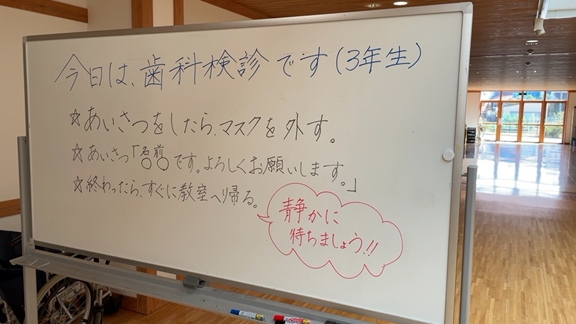 今日は、歯科検診です(3年生)
☆あいさつをしたら、マスクを外す。
☆あいさつ「名前です。よろしくお願いします。」
☆終わったら、すぐに教室へ帰る。
静かに
待ちましょう!!